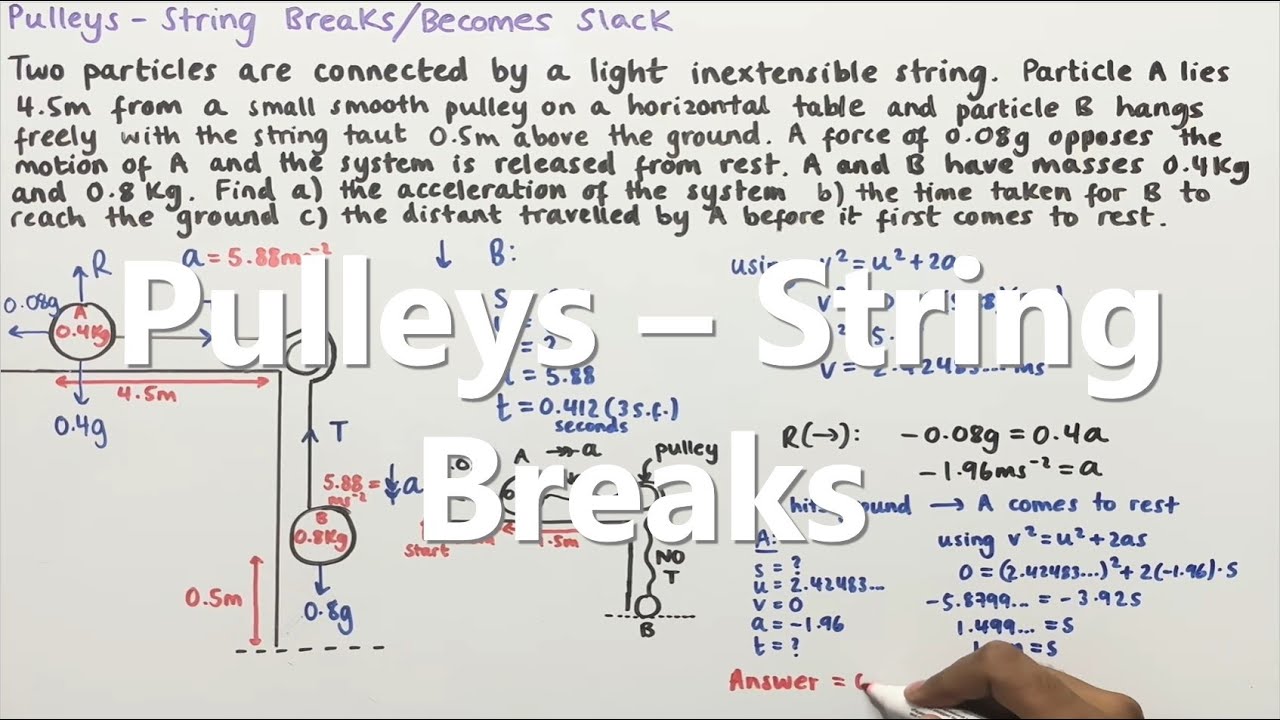 Pulleys – String Breaks/Becomes Slack
Two particles are connected by a light inextensible string. Particle A lies
4.5m from a small smooth pulley on a horizontal table and particle B hangs
freely with the string taut 0.5m above the ground. A force of 0.08g opposes the
motion of A and the system is released from rest. A and B have masses 0.4Kg
and 0.8Kg. Find a) the acceleration of the system b) the time taken for B to
reach the ground c) the distant travelled by A before it first comes to rest.
Pulleys – String
Breaks
R
a = 5.88ms⁻²
0.08g
A
0.4Kg
4.5m
0.4g
T
5.88
ms⁻²
= a
B
0.8Kg
0.5m
0.8g
↓ B:
= 5.88
t = 0.412 (3s.f.)
seconds
A
a
pulley
Start
NO
T
B
using v² = u² + 2as
v = 2.42483... ms
R(→): -0.08g = 0.4a
-1.96ms⁻² = a
→ A comes to rest
A:
s = ?
u = 2.42483...
v = 0
a = -1.96
t = ?
using v² = u² + 2as
0 = (2.42483...)² + 2(-1.96)·s
-5.8799... = -3.92s
1.499... = s
= s
Answer =